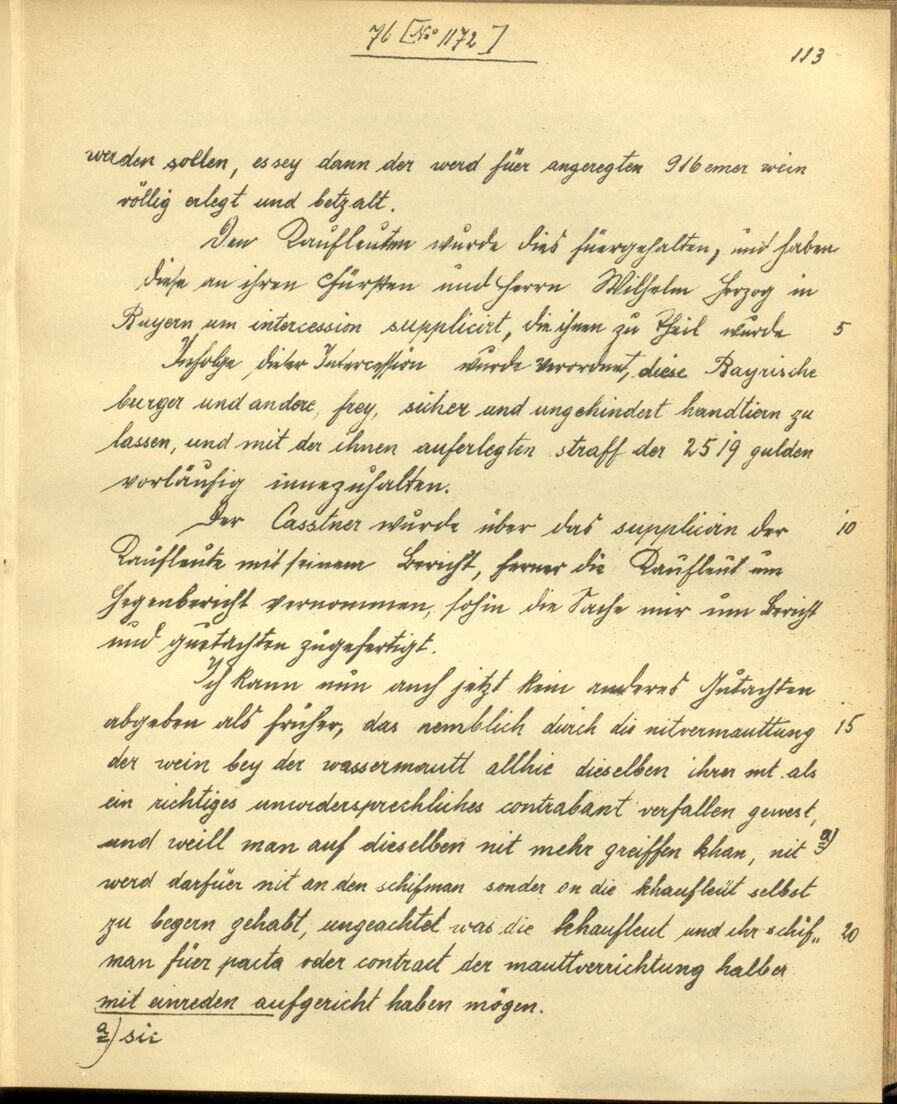 76 [No 1172]
113
werden sollen, es sey dann der werd füer angeregten 916 emer wein
völlig erlegt und betzalt.
Den Kaufleuten wurde dies füergehalten, und haben
diese an ihren Fürsten und Herrn Wilhelm Herzog in
Bayern um intercession supplicirt, die ihnen zu Theil wurde 5
Infolge dieser Intercession wurde verordnet, diese Bayrische
burger und andere, frey, sicher und ungehindert handtiern zu
lassen, und mit der ihnen auferlegten straff der 2519 gulden
vorläufig innezuhalten.
Der Casstner wurde über das supplicirn der 10
Kaufleute mit seinem Bericht, ferner die Kaufleut um
Gegenbericht vernommen, sohin die Sache mir um Bericht
und guetachten zugefertigt.
Ich kann nun auch jetzt kein anderes Gutachten
abgeben als früher, das nemblich durch die nitvermauttung 15
der wein bey der wassermautt allhie dieselben ihrer mt. als
ein richtiges unwidersprechliches contrabant verfallen gewest,
und weill man auf dieselben nit mehr greiffen khan, nit a)
werd darfüer nit an den schifman sonder an die khaufleüt selbst
zu begern gehabt, ungeachtet was die khaufleut und ihr schif„ 20
man füer pacta oder contract der mauttverrichtung halber
mit einreden aufgericht haben mögen.
a) sic